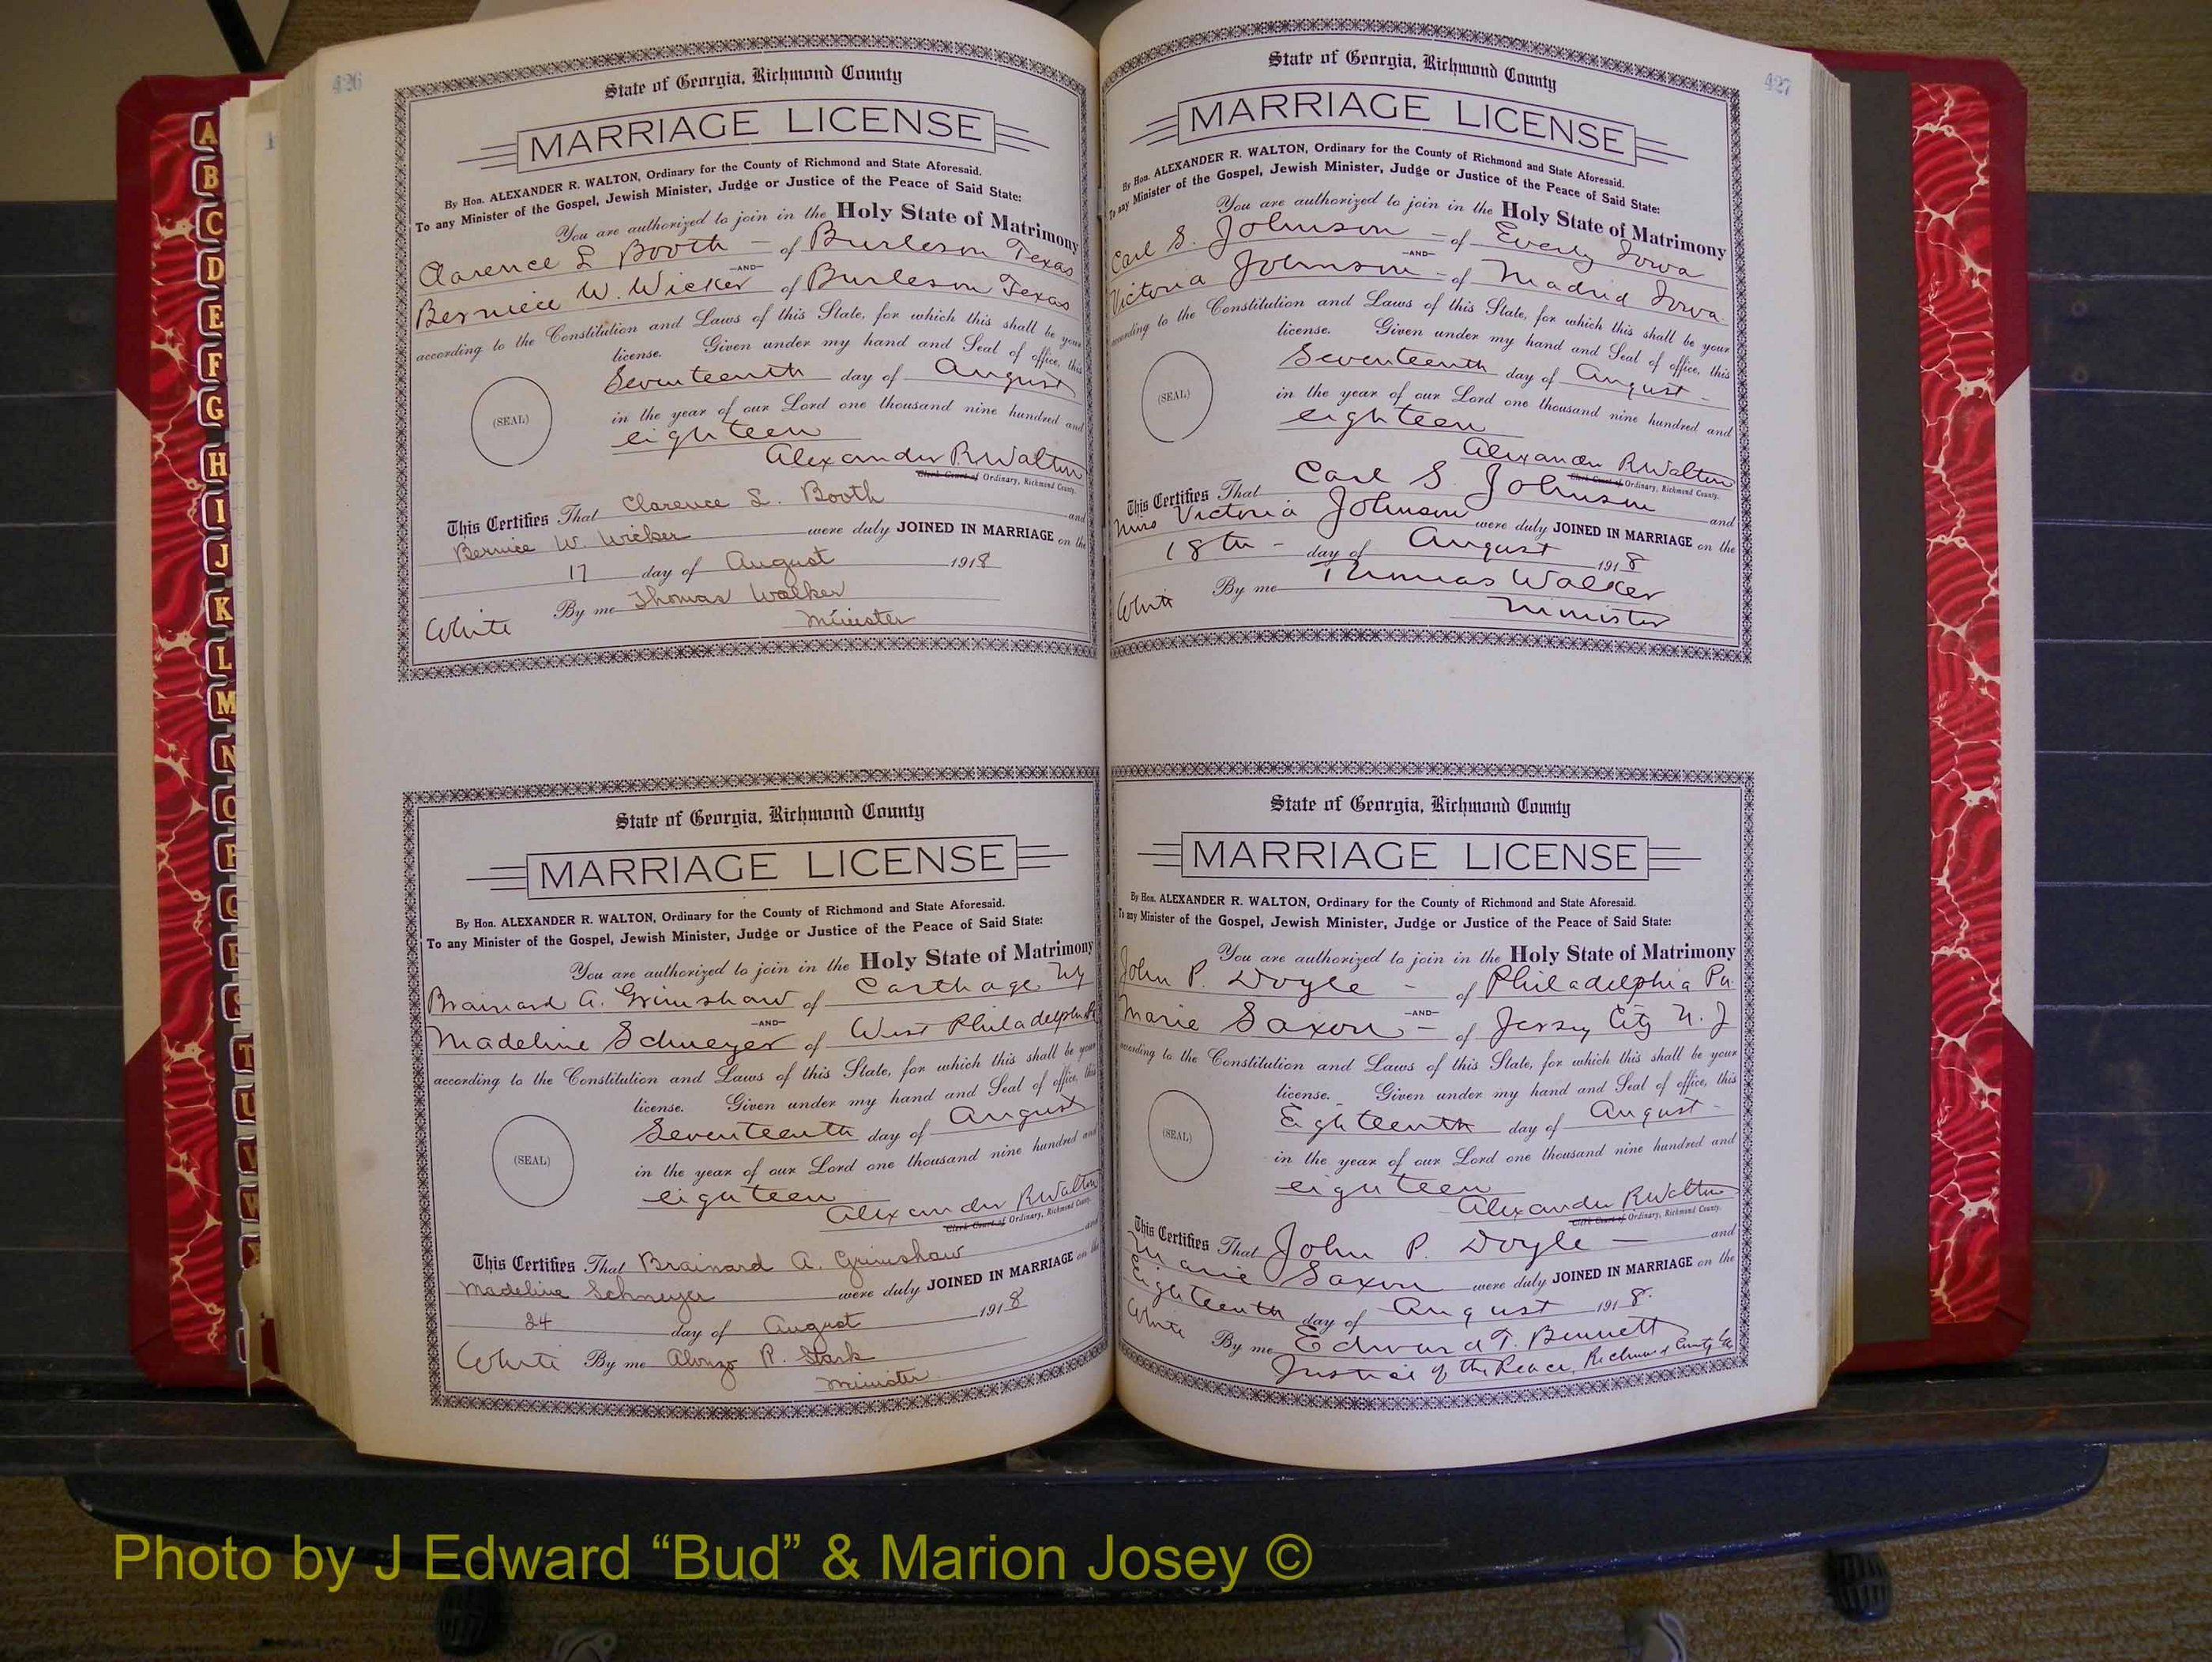 426
State of Georgia, Richmond County
MARRIAGE LICENSE
By Hon. ALEXANDER R. WALTON, Ordinary for the County of Richmond and State Aforesaid.
To any Minister of the Gospel, Jewish Minister, Judge or Justice of the Peace of Said State:
You are authorized to join in the Holy State of Matrimony
Clarence L Booth - of Burleson Texas
-AND-
Berniece W. Wicker of Burleson Texas
according to the Constitution and Laws of this State, for which this shall be your
license. Given under my hand and Seal of office, this
Seventeenth day of August
(SEAL)
in the year of our Lord one thousand nine hundred and
eighteen
Alexander R Walton
Clerk Court of Ordinary, Richmond County.
This Certifies That Clarence L. Booth and
Bernice W. Wicker were duly JOINED IN MARRIAGE on the
17 day of August 1918
By me Thomas Walker
White Minister
State of Georgia, Richmond County
MARRIAGE LICENSE
By Hon. ALEXANDER R. WALTON, Ordinary for the County of Richmond and State Aforesaid.
To any Minister of the Gospel, Jewish Minister, Judge or Justice of the Peace of Said State:
You are authorized to join in the Holy State of Matrimony
Brainard A. Grimshaw of Carthage NY
-AND-
Madeline Schneyer of West Philadelphia
according to the Constitution and Laws of this State, for which this shall be your
license. Given under my hand and Seal of office, this
Seventeenth day of August
(SEAL)
in the year of our Lord one thousand nine hundred and
eighteen
Alexander R Walton
Clerk Court of Ordinary, Richmond County.
This Certifies That Brainard A. Grimshaw and
Madeline Schneyer were duly JOINED IN MARRIAGE on the
24 day of August 1918
White By me Alonzo P. Stark
Minister
427
State of Georgia, Richmond County
MARRIAGE LICENSE
By Hon. ALEXANDER R. WALTON, Ordinary for the County of Richmond and State Aforesaid.
To any Minister of the Gospel, Jewish Minister, Judge or Justice of the Peace of Said State:
You are authorized to join in the Holy State of Matrimony
Carl S. Johnson - of Everly Iowa
-AND-
Victoria Johnson - of Madrid Iowa
according to the Constitution and Laws of this State, for which this shall be your
license. Given under my hand and Seal of office, this
Seventeenth day of August -
(SEAL)
in the year of our Lord one thousand nine hundred and
eighteen
Alexander R Walton
Clerk Court of Ordinary, Richmond County.
This Certifies That Carl S. Johnson and
Miss Victoria Johnson were duly JOINED IN MARRIAGE on the
18th - day of August 1918
By me Thomas Walker
White Minister
State of Georgia, Richmond County
MARRIAGE LICENSE
By Hon. ALEXANDER R. WALTON, Ordinary for the County of Richmond and State Aforesaid.
To any Minister of the Gospel, Jewish Minister, Judge or Justice of the Peace of Said State:
You are authorized to join in the Holy State of Matrimony
John P. Doyle - of Philadelphia Pa
-AND-
Marie Saxon - of Jersey City N. J
according to the Constitution and Laws of this State, for which this shall be your
license. Given under my hand and Seal of office, this
Eighteenth day of August -
(SEAL)
in the year of our Lord one thousand nine hundred and
eighteen
Alexander R Walton
Clerk Court of Ordinary, Richmond County.
This Certifies That John P. Doyle - and
Marie Saxon were duly JOINED IN MARRIAGE on the
eighteenth day of August 1918.
White By me Edward T. Bennett
Justice of the Peace, Richmond County Ga
A
B
C
D
E
F
G
H
I
J
K
L
M
N
O
P
Q
R
S
T
U
V
W
Photo by J Edward “Bud” & Marion Josey ©